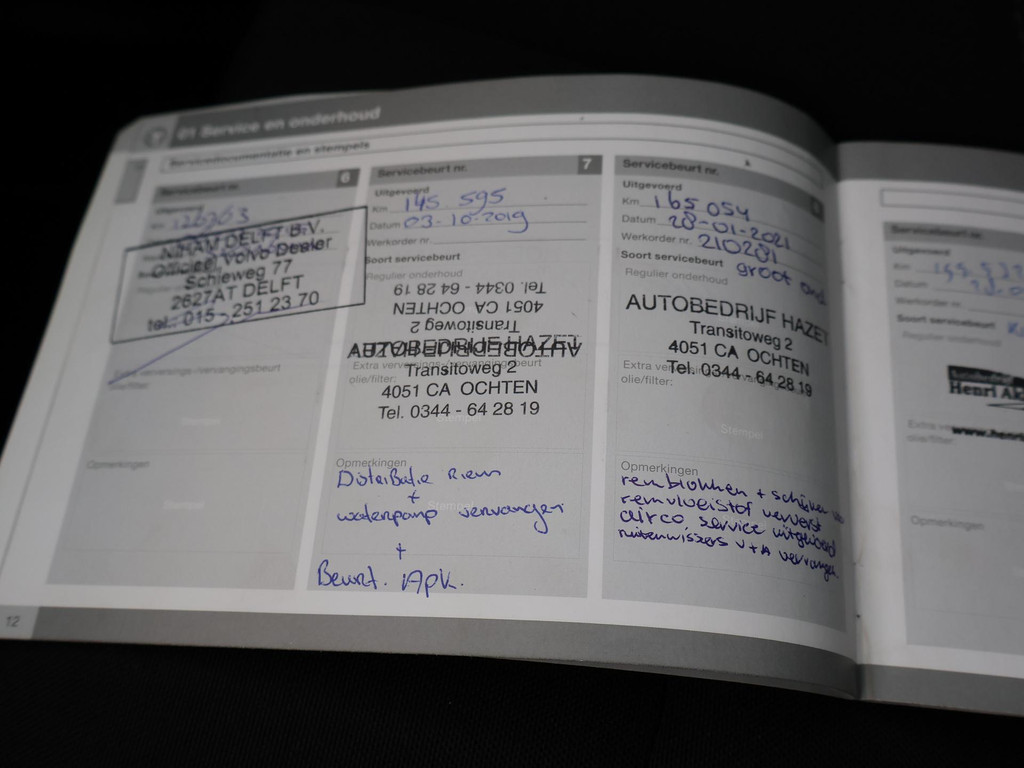 01 Service en onderhoud
Servicedocumentatie en stempels
Servicebeurt nr. 6
Km 126763
NIHAM DELFT B.V.
Officieel Volvo Dealer
Schieweg 77
2627AT DELFT
tel.: 015 - 251 23 70
Extra verversings-/vervangingsbeurt
olie/filter:
Opmerkingen
Stempel
Servicebeurt nr. 7
Uitgevoerd
Km 145 595
Datum 03-10-2019
Werkorder nr.
Soort servicebeurt
Regulier onderhoud
Tel. 0344 - 64 28 19
4051 CA OCHTEN
Transitoweg 2
AUTOBEDRIJF HAZET
AUTOBEDRIJF HAZET
Extra verversings-/vervangingsbeurt
Transitoweg 2
olie/filter:
4051 CA OCHTEN
Tel. 0344 - 64 28 19
Stempel
Opmerkingen
Distributie Riem
+
waterpomp vervangen
+
Beurt. Apk.
Servicebeurt nr.
Uitgevoerd
Km 165 054
Datum 28-01-2021
Werkorder nr. 210281
Soort servicebeurt groot ond
Regulier onderhoud
AUTOBEDRIJF HAZET
Transitoweg 2
4051 CA OCHTEN
Extra
Tel. 0344 - 64 28 19
olie/filter:
Stempel
Opmerkingen
remblokken + schijven
remvloeistof ververst
airco, service uitgevoerd
ruitenwissers V+A vervangen
12
Servicebeurt nr.
Uitgevoerd
Km
Datum
Werkorder nr.
Soort servicebeurt
Regulier onderhoud
Autobedrijf
Henri Ak
Extra
www.henri
olie/filter:
Opmerkingen